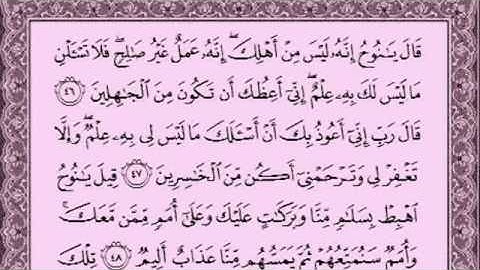 قَالَ يَٰنُوحُ إِنَّهُۥ لَيْسَ مِنْ أَهْلِكَ ۖ إِنَّهُۥ عَمَلٌ غَيْرُ صَٰلِحٍ ۖ فَلَا تَسْـَٔلْنِ
مَا لَيْسَ لَكَ بِهِۦ عِلْمٌ ۖ إِنِّىٓ أَعِظُكَ أَن تَكُونَ مِنَ ٱلْجَٰهِلِينَ ٤٦
قَالَ رَبِّ إِنِّىٓ أَعُوذُ بِكَ أَنْ أَسْـَٔلَكَ مَا لَيْسَ لِى بِهِۦ عِلْمٌ ۖ وَإِلَّا
تَغْفِرْ لِى وَتَرْحَمْنِىٓ أَكُن مِّنَ ٱلْخَٰسِرِينَ ٤٧ قِيلَ يَٰنُوحُ
ٱهْبِطْ بِسَلَٰمٍ مِّنَّا وَبَرَكَٰتٍ عَلَيْكَ وَعَلَىٰٓ أُمَمٍ مِّمَّن مَّعَكَ ۚ
وَأُمَمٌ سَنُمَتِّعُهُمْ ثُمَّ يَمَسُّهُم مِّنَّا عَذَابٌ أَلِيمٌ ٤٨ تِلْكَ